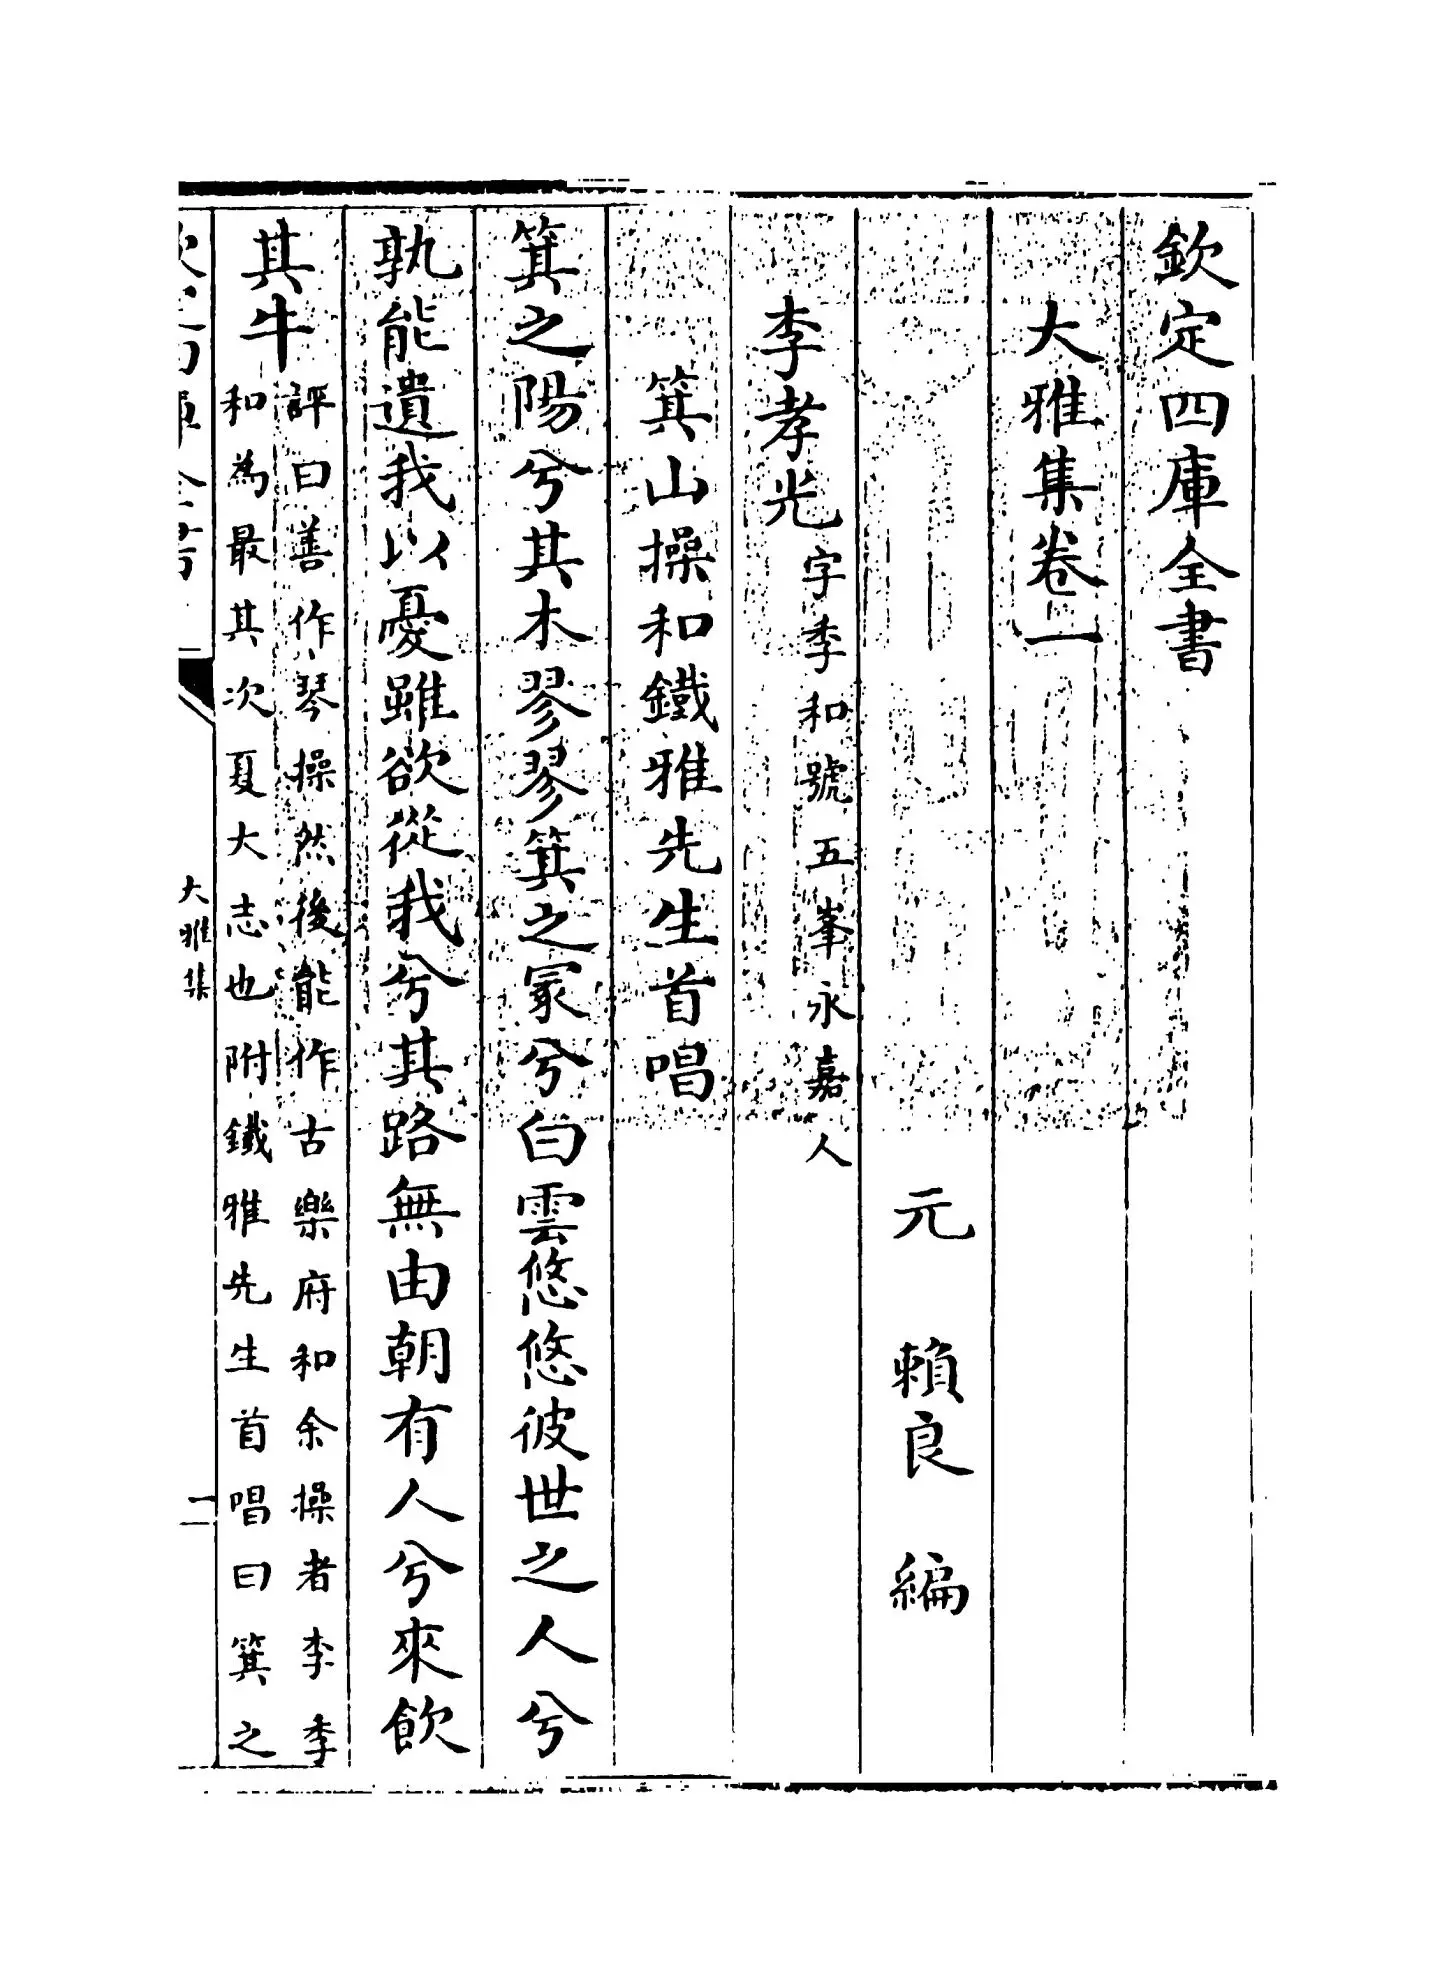 欽定四庫全書
大雅集卷一
元 賴良 編
李孝光字季和號五峯永嘉人
箕山操和鐵雅先生首唱
箕之陽兮其木翏翏箕之冢兮白雲悠悠彼世之人兮
孰能遺我以憂雖欲從我兮其路無由朝有人兮來飲
其牛
評曰善作琴操然後能作古樂府和余操者李季
和為最其次夏大志也附鐵雅先生首唱曰箕之
大雅集
一